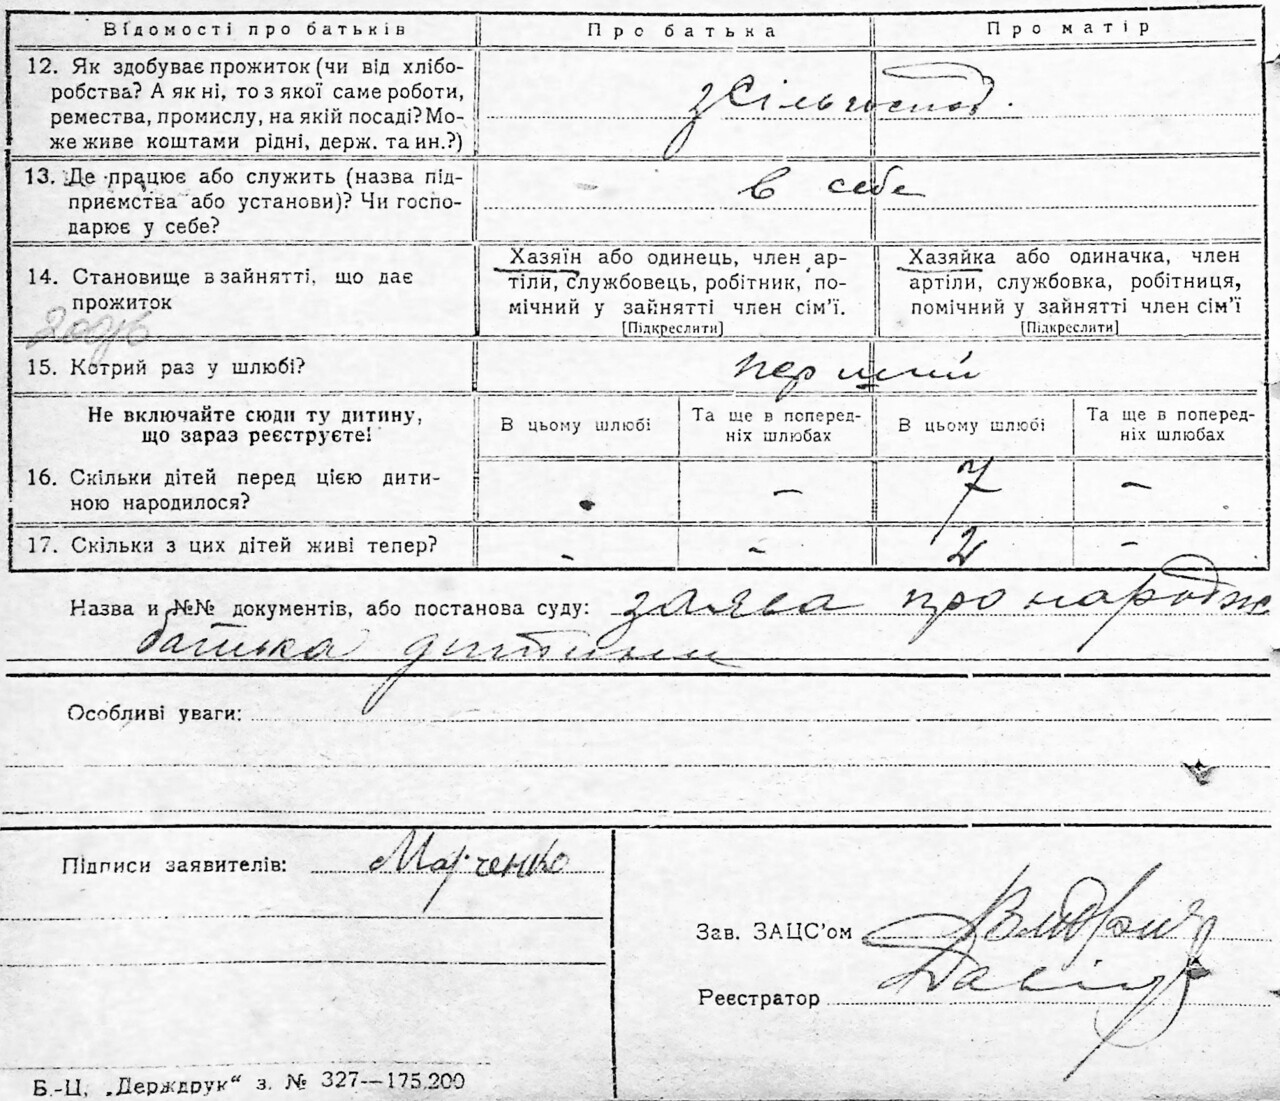 Відомості про батьків Про батька Про матір
12. Як здобуває прожиток (чи від хлібо-
робства? А як ні, то з якої саме роботи,
ремества, промислу, на якій посаді? Мо-
же живе коштами рідні, держ. та ин.?)
з сільгоспод.
13. Де працює або служить (назва під-
приємства або установи)? Чи госпо-
дарює у себе?
в себе
14. Становище в зайнятті, що дає
прожиток
Хазяїн або одинець, член ар-
тіли, службовець, робітник, по-
мічний у зайнятті член сім'ї.
[Підкреслити]
Хазяйка або одиначка, член
артіли, службовка, робітниця,
помічний у зайнятті член сім'ї
[Підкреслити]
15. Котрий раз у шлюбі? перший
Не включайте сюди ту дитину,
що зараз реєструєте!
В цьому шлюбі
Та ще в поперед-
ніх шлюбах
В цьому шлюбі
Та ще в поперед-
ніх шлюбах
16. Скільки дітей перед цією дити-
ною народилося?
- 7 -
17. Скільки з цих дітей живі тепер?
- - -
Назва и №№ документів, або постанова суду: заява про народж
батька дитини
Особливі уваги:
Підписи заявителів: Марченко
Зав. ЗАЦС'ом
Реєстратор
Б.-Ц, „Держдрук“ з. № 327—175.200